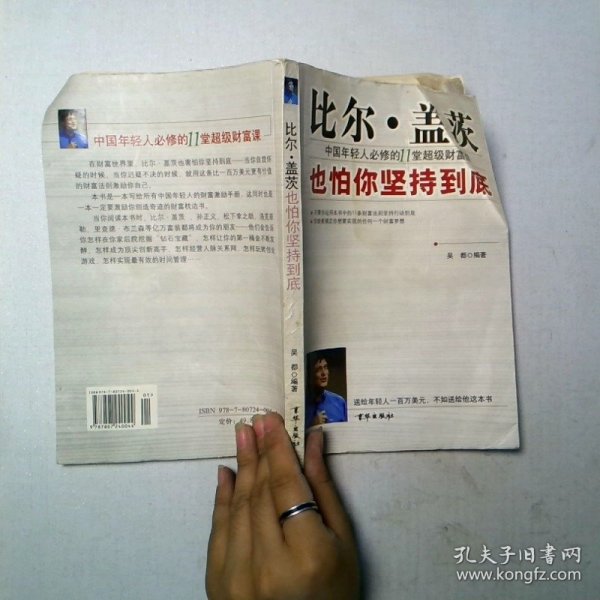 中国年轻人必修的11堂超级财富课
在财富世界里，比尔·盖茨也害怕你坚持到底——当你自信怀
疑的时候，当你迟疑不决的时候，就用这条比一百万美元更有价值
的财富法则激励你自己。
本书是一本写给所有中国年轻人的财富激励手册，这同时也是
一本一定要激励你创造奇迹的财富枕边书。
当你阅读本书时，比尔·盖茨、孙正义、松下幸之助、洛克菲
勒、里查德·布兰森等亿万富翁都将成为你的朋友——他们会告诉
你怎样在你家后院挖掘“钻石宝藏”，怎样让你的第一桶金不断发
酵，怎样成为顶尖创新高手，怎样经营人脉关系网，怎样玩转创业
游戏，怎样实现最有效的时间管理……
ISBN 978-7-80724-
定价：
9787807240044
比尔·盖茨也怕你坚持到底
吴都◎编著
京华出版社
比尔·盖茨
中国年轻人必修的11堂超级财富
也怕你坚持到底
吴都◎编著
送给年轻人一百万美元，不如送给他这本书
京华出版社
孔夫子旧书网
www.kongfz.com